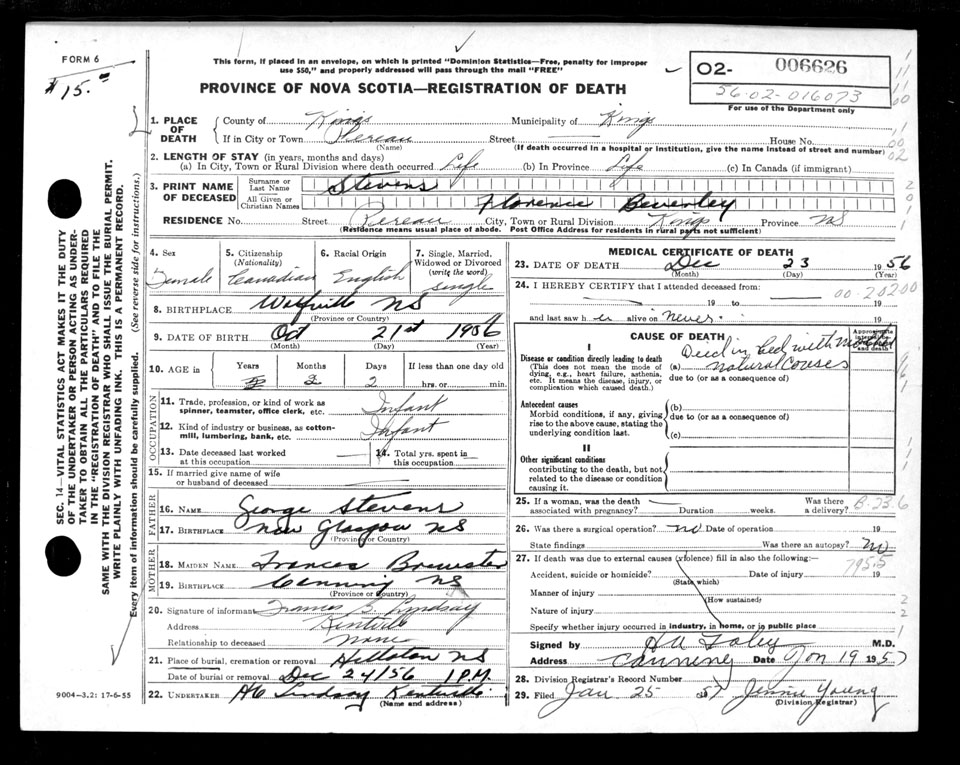 FORM 6
$15.00
This form, if placed in an envelope, on which is printed "Dominion Statistics—Free, penalty for improper
use $50," and properly addressed will pass through the mail "FREE"
PROVINCE OF NOVA SCOTIA—REGISTRATION OF DEATH
02- 006626
56-02-016073
For use of the Department only
1. PLACE OF DEATH County of Kings Municipality of Kings
If in City or Town Pereau Street House No.
(Name) (If death occurred in a hospital or institution, give the name instead of street and number)
2. LENGTH OF STAY (in years, months and days)
(a) In City, Town or Rural Division where death occurred Life (b) In Province Life (c) In Canada (if immigrant)
3. PRINT NAME OF DECEASED Surname or Last Name Stevens
All Given or Christian Names Florence Beverley
RESIDENCE No. Street Pereau City, Town or Rural Division Kings Province NS
(Residence means usual place of abode. Post Office Address for residents in rural parts not sufficient)
4. Sex Female
5. Citizenship (Nationality) Canadian
6. Racial Origin English
7. Single, Married, Widowed or Divorced (write the word) single
8. BIRTHPLACE Wolfville NS
(Province or Country)
9. DATE OF BIRTH Oct 21st 1956
(Month) (Day) (Year)
10. AGE in Years Months Days If less than one day old
2 2 hrs. or min.
OCCUPATION
11. Trade, profession, or kind of work as spinner, teamster, office clerk, etc. Infant
12. Kind of industry or business, as cotton-mill, lumbering, bank, etc. Infant
13. Date deceased last worked at this occupation
14. Total yrs. spent in this occupation
15. If married give name of wife or husband of deceased
FATHER
16. NAME George Stevens
17. BIRTHPLACE New Glasgow NS
(Province or Country)
MOTHER
18. MAIDEN NAME Frances Brewster
19. BIRTHPLACE Canning NS
(Province or Country)
20. Signature of informant Lyndsay
Address Kentville
Relationship to deceased None
21. Place of burial, cremation or removal NS
Date of burial or removal Dec 24/56 1 P.M.
22. UNDERTAKER Lindsay Kentville
(Name and address)
MEDICAL CERTIFICATE OF DEATH
23. DATE OF DEATH Dec 23 1956
(Month) (Day) (Year)
24. I HEREBY CERTIFY that I attended deceased from:
00-20200
19 to 19
and last saw h er alive on never 19
CAUSE OF DEATH
Approximate interval between onset and death
I
Disease or condition directly leading to death
(This does not mean the mode of dying, e.g., heart failure, asthenia, etc. It means the disease, injury, or complication which caused death.)
(a) Died in bed with
natural Causes
due to (or as a consequence of)
Antecedent causes
Morbid conditions, if any, giving rise to the above cause, stating the underlying condition last.
(b)
due to (or as a consequence of)
(c)
II
Other significant conditions
contributing to the death, but not related to the disease or condition causing it.
25. If a woman, was the death associated with pregnancy? Duration weeks. Was there a delivery? B-23-6
26. Was there a surgical operation? no Date of operation 19
State findings Was there an autopsy? no
27. If death was due to external causes (violence) fill in also the following: 795.5
Accident, suicide or homicide? Date of injury 19
(State which)
Manner of injury
(How sustained)
Nature of injury
Specify whether injury occurred in industry, in home, or in public place
Signed by Foley M.D.
Address Canning Date Jan 19 1957
28. Division Registrar's Record Number
29. Filed Jan 25 1957 Jennie Young
(Division Registrar)
SEC. 14—VITAL STATISTICS ACT MAKES IT THE DUTY
OF THE UNDERTAKER OR PERSON ACTING AS UNDER-
TAKER TO OBTAIN ALL THE PARTICULARS REQUIRED
IN THE "REGISTRATION OF DEATH" AND TO FILE THE
SAME WITH THE DIVISION REGISTRAR WHO SHALL ISSUE THE BURIAL PERMIT.
WRITE PLAINLY WITH UNFADING INK. THIS IS A PERMANENT RECORD.
Every item of information should be carefully supplied. (See reverse side for instructions.)
9004—3.2: 17-6-55